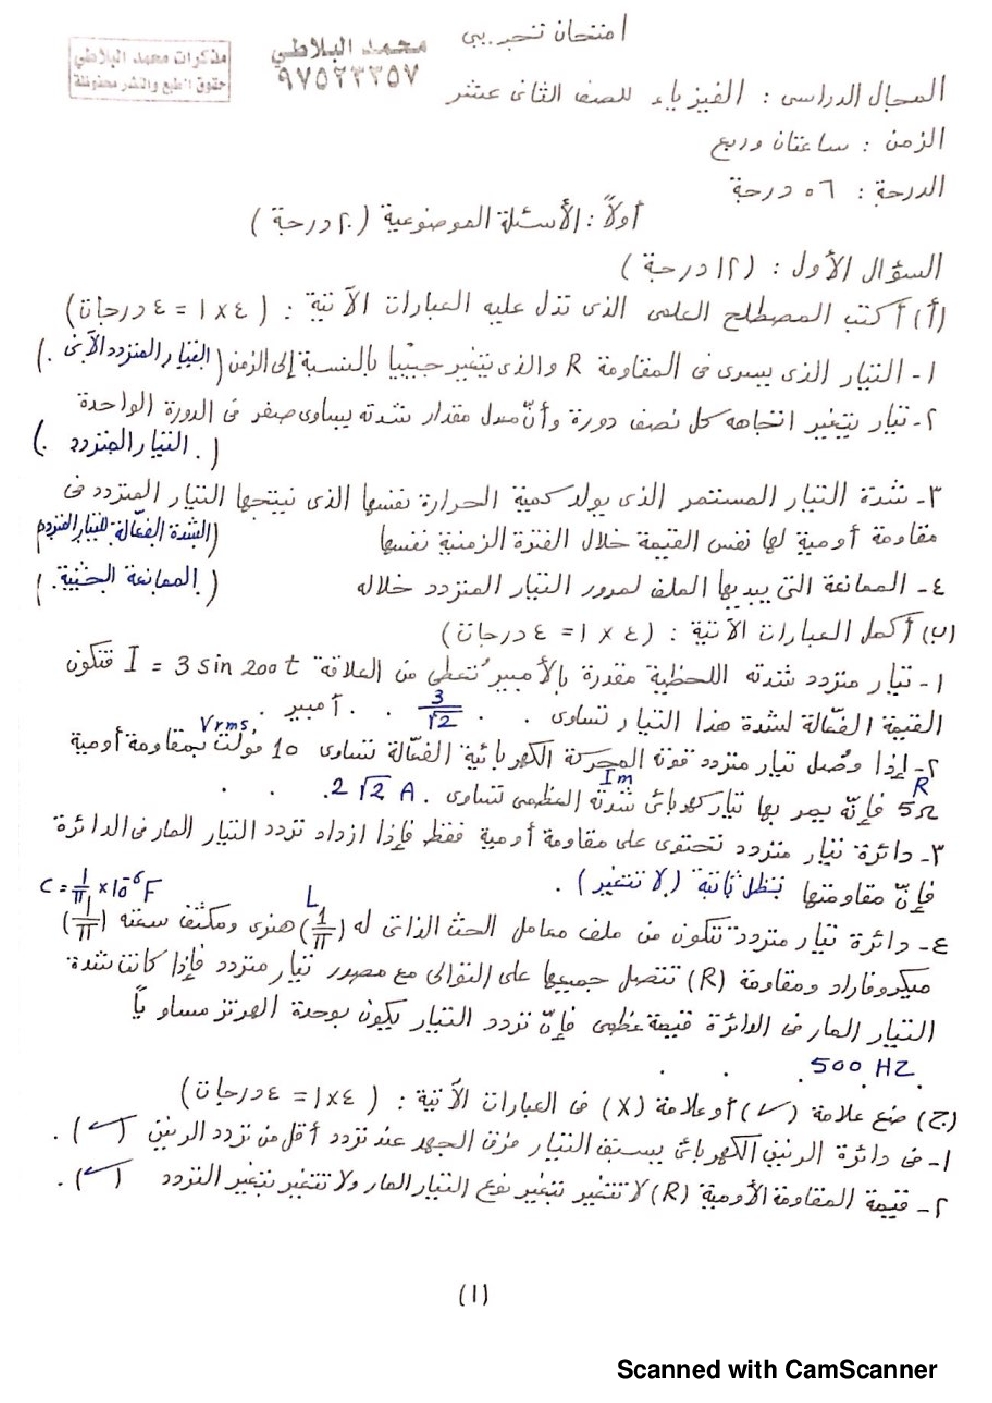 امتحان تجريبى
محمد البلاطي
٩٧٥٢٣٣٥٧
مذكرات محمد البلاطي
حقوق الطبع والنشر محفوظة
المجال الدراسى : الفيزياء للصف الثانى عشر
الزمن : ساعتان وربع
الدرجة : ٥٦ درجة
أولاً : الأسئلة الموضوعية (٢٠ درجة)
السؤال الأول : (١٢ درجة)
(أ) أكتب المصطلح العلمى الذى تدل عليه العبارات الآتية : (٤ × ١ = ٤ درجات)
١- التيار الذى يسرى فى المقاومة R والذى يتغير جيبيا بالنسبة إلى الزمن (التيار المتردد الآنى .)
٢- تيار يتغير اتجاهه كل نصف دورة وأنّ معدل مقدار شدته يساوى صفر فى الدورة الواحدة
(. التيار المتردد .)
٣- شدة التيار المستمر الذى يولد كمية الحرارة نفسها الذى ينتجها التيار المتردد فى
مقاومة أومية لها نفس القيمة خلال الفترة الزمنية نفسها (الشدة الفعّالة للتيار المتردد)
٤- الممانعة التى يبديها الملف لمرور التيار المتردد خلاله (. الممانعة الحثية .)
(ب) أكمل العبارات الآتية : (٤ × ١ = ٤ درجات)
١- تيار متردد شدته اللحظية مقدرة بالأمبير تُعطى من العلاقة I = 3 sin 200 t فتكون
القيمة الفعّالة لشدة هذا التيار تساوى . . 3/√2 . . أمبير .
Vrms
٢- إذا وُصل تيار متردد قوته المحركة الكهربائية الفعّالة تساوى 10 ڤولت بمقاومة أومية
R Im
5Ω فإنّه يمر بها تيار كهربائى شدته العظمى تساوى . 2√2 A . . .
٣- دائرة تيار متردد تحتوى على مقاومة أومية فقط فإذا ازداد تردد التيار المار فى الدائرة
فإنّ مقاومتها تظل ثابتة (لا تتغير) .
L C = 1/π × 10⁻⁶ F
٤- دائرة تيار مترددة تتكون من ملف معامل الحث الذاتى له (1/π) هنرى ومكثف سعته (1/π)
ميكروفاراد ومقاومة (R) تتصل جميعها على التوالى مع مصدر تيار متردد فإذا كانت شدة
التيار المار فى الدائرة قيمة عظمى فإنّ تردد التيار يكون بوحدة الهرتز مساوياً
. 500 HZ . . .
(ج) ضع علامة (✓) أو علامة (X) فى العبارات الآتية : (٤ × ١ = ٤ درجات)
١- فى دائرة الرنين الكهربائى يسبق التيار فرق الجهد عند تردد أقل من تردد الرنين (✓) .
٢- قيمة المقاومة الأومية (R) لا تتغير بتغير نوع التيار المار ولا تتغير بتغير التردد (✓) .
(١)
Scanned with CamScanner